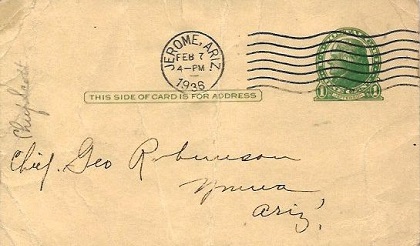 JEROME, ARIZ
FEB 7
4-PM
1936
THIS SIDE OF CARD IS FOR ADDRESS
1 1
Chief. Geo Robinson
Yuma
Ariz.